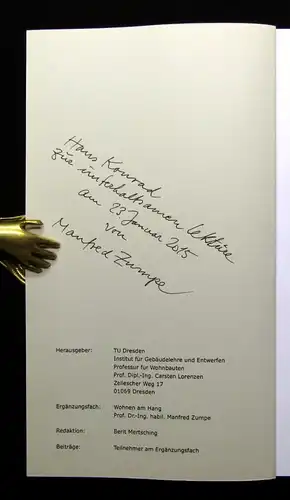 Hans Konrad
zur unterhaltsamen Lektüre
am 23. Januar 2015
von
Manfred Zumpe
Herausgeber: TU Dresden
Institut für Gebäudelehre und Entwerfen
Professur für Wohnbauten
Prof. Dipl.-Ing. Carsten Lorenzen
Zellescher Weg 17
01069 Dresden
Ergänzungsfach: Wohnen am Hang
Prof. Dr.-Ing. habil. Manfred Zumpe
Redaktion: Berit Mertsching
Beiträge: Teilnehmer am Ergänzungsfach